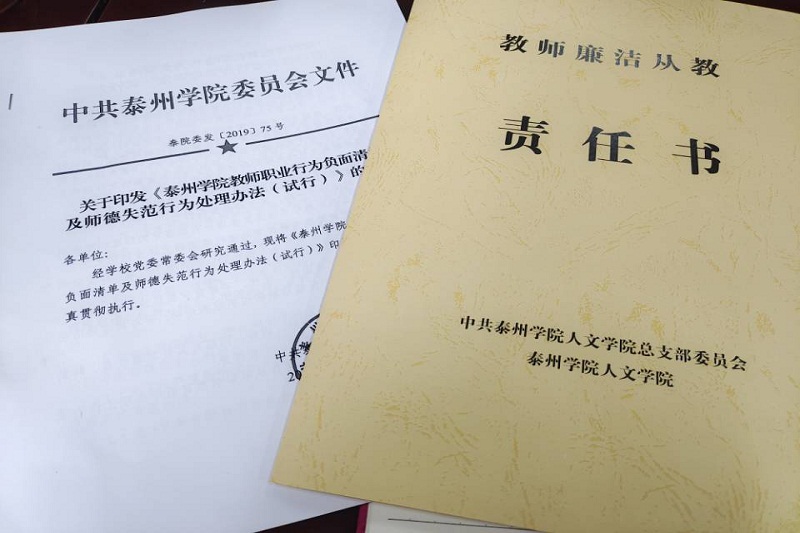 中共泰州学院委员会文件
泰院委发〔2019〕75号
关于印发《泰州学院教师职业行为负面清
及师德失范行为处理办法（试行）》的
各单位：
经学校党委常委会研究通过，现将《泰州学院
负面清单及师德失范行为处理办法（试行）》印
真贯彻执行。
中共
20
教师廉洁从教
责任书
中共泰州学院人文学院总支部委员会
泰州学院人文学院